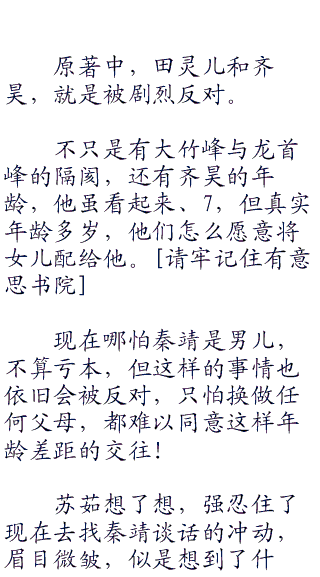 原著中，田灵儿和齐
昊，就是被剧烈反对。
不只是有大竹峰与龙首
峰的隔阂，还有齐昊的年
龄，他虽看起来、7，但真实
年龄多岁，他们怎么愿意将
女儿配给他。[请牢记住有意
思书院]
现在哪怕秦靖是男儿，
不算亏本，但这样的事情也
依旧会被反对，只怕换做任
何父母，都难以同意这样年
龄差距的交往！
苏茹想了想，强忍住了
现在去找秦靖谈话的冲动，
眉目微皱，似是想到了什